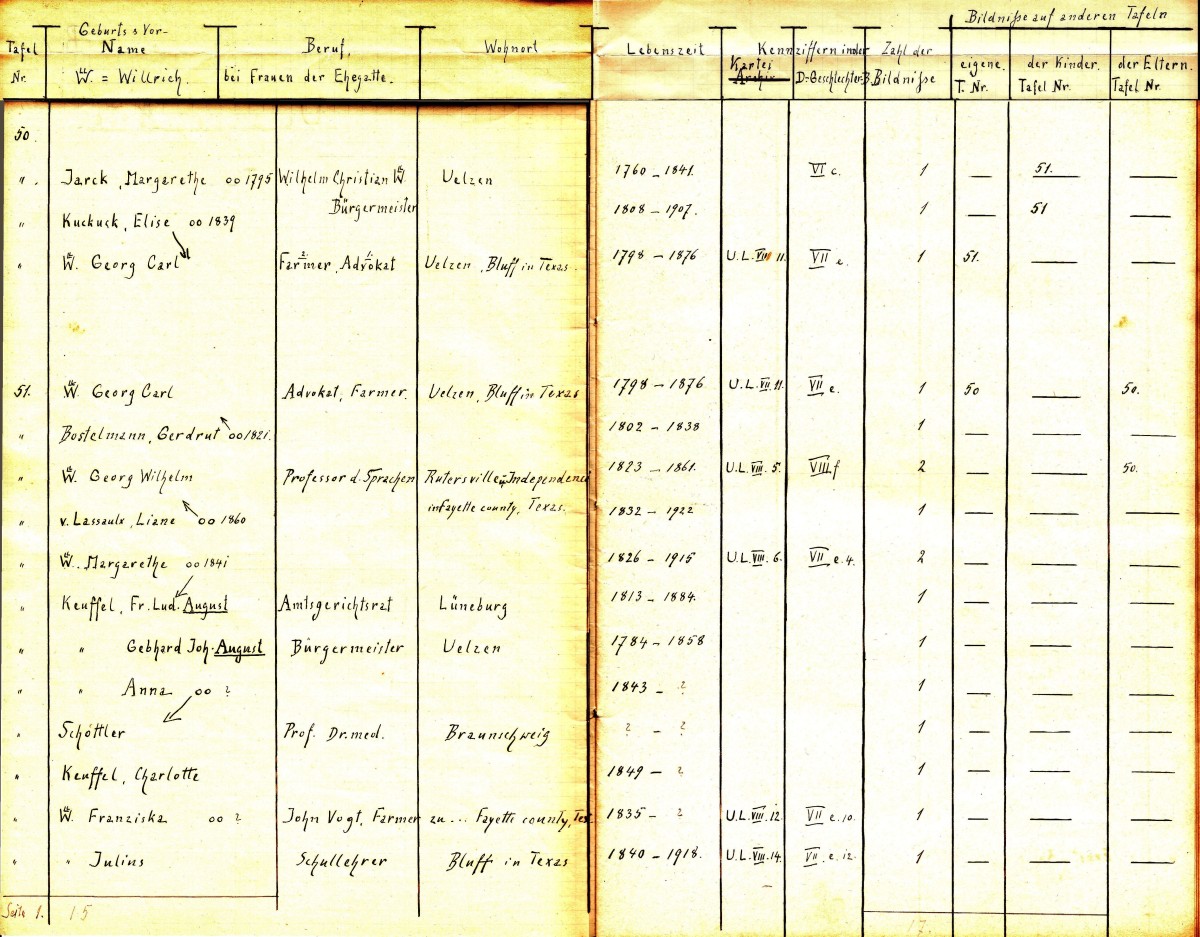 Geburts & Vor- Bildniße auf anderen Tafeln
Tafel Name Beruf, Wohnort Lebenszeit Kennziffern in der Zahl der eigene. der Kinder. der Eltern.
Nr. W. = Willrich. bei Frauen der Ehegatte. Kartei Archiv D-Geschlechter-B. Bildniße T. Nr. Tafel Nr. Tafel Nr.
50.
" . Jarck, Margarethe oo 1795 Wilhelm Christian W. Uelzen 1760 – 1841. VI c. 1 — 51. —
Bürgermeister
" Kuckuck, Elise oo 1839 1808 – 1907. 1 — 51 —
" W. Georg Carl Farmer, Advokat Uelzen, Bluff in Texas. 1798 – 1876 U.L. VII 11. VII e. 1 51. — —
2 1
51. W. Georg Carl Advokat, Farmer. Uelzen, Bluff in Texas 1798 – 1876 U.L. VII. 11. VII e. 1 50 — 50.
" Bostelmann, Gerdrut oo 1821. 1802 – 1838 1 — — —
" W. Georg Wilhelm Professor d. Sprachen Rutersville u Independence 1823 – 1861. U.L. VIII. 5. VIII f 2 — — 50.
in Fayette county, Texas.
" v. Lassaulx, Liane oo 1860 1832 – 1922 1 — — —
" W. Margarethe oo 1841 1826 – 1915 U.L. VIII. 6. VII e. 4. 2 — — —
" Keuffel, Fr. Lud. August Amtsgerichtsrat Lüneburg 1813 – 1884. 1 — — —
" " Gebhard Joh. August Bürgermeister Uelzen 1784 – 1858 1 — — —
" " Anna oo ? 1843 – ? 1 — — —
" Schöttler Prof. Dr. med. Braunschweig ? – ? 1 — — —
" Keuffel, Charlotte 1849 – ? 1 — — —
" W. Franziska oo ? John Vogt, Farmer zu ... Fayette county, Tex. 1835 – ? U.L. VIII. 12. VII e. 10. 1 — — —
" " Julius Schullehrer Bluff in Texas 1840 – 1918. U.L. VIII. 14. VII. e. 12. 1 — — —
Seite 1. 15 17.